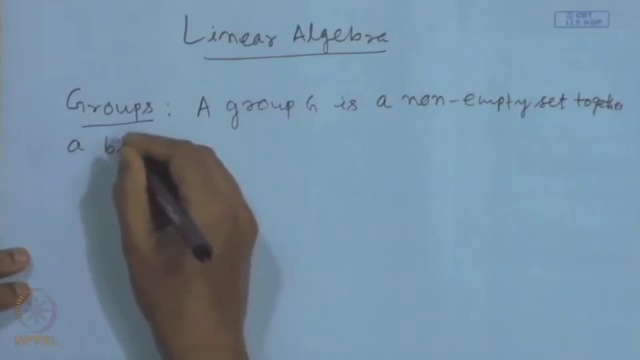 Linear Algebra
© CET
I.I.T. KGP
Groups : A group G is a non-empty set together
a b
NPTEL